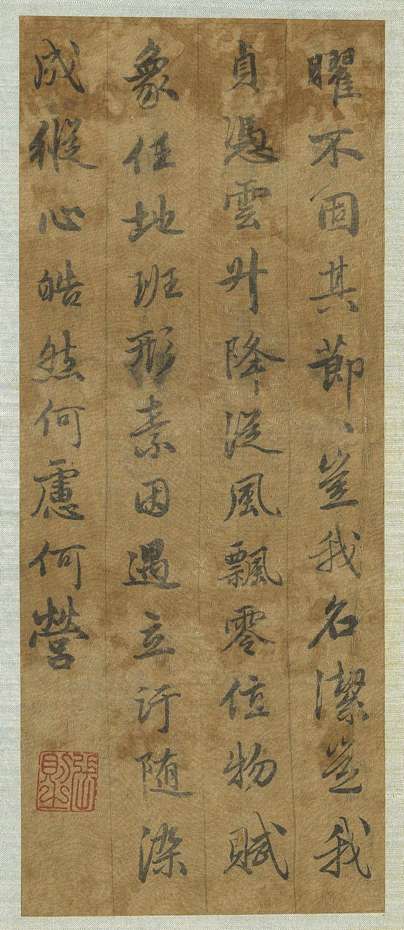 曜不固其節、豈我名潔豈我
貞憑雲升降從風飄零值物賦
象任地班形素因遇立汙隨染
成縱心皓然何慮何營
張則之